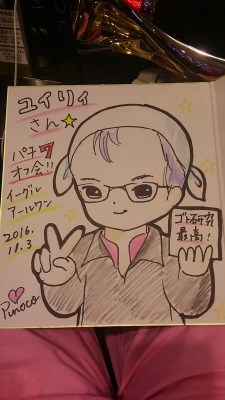 ユイリィ
さん
パチ7
オフ会!!
イーグル
アールワン
2016.
11.3
Pinoco
ゴト研究
最高!